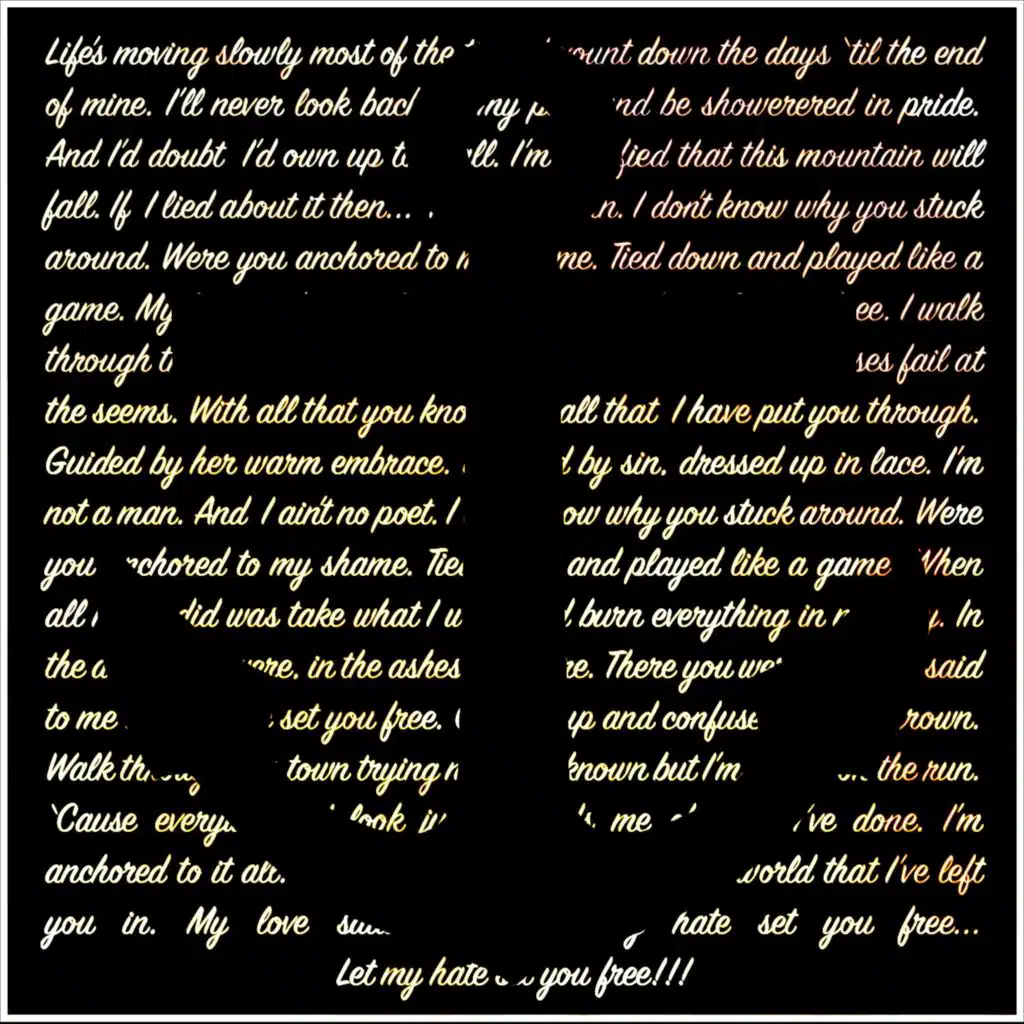 Life's moving slowly most of the down the days 'til the end
of mine. I'll never look my be showerered in pride.
And I'd doubt I'd own up I'm that this mountain will
fall. If I lied about it then... I don't know why you stuck
around. Were you anchored to Tied down and played like a
game. My I walk
through fail at
the seems. With all that you all that I have put you through.
Guided by her warm embrace. by sin, dressed up in lace. I'm
not a man. And I ain't no poet. I why you stuck around. Were
you to my shame. and played like a game When
all was take what I burn everything in In
the in the ashes There you said
to me set you free. up and confuse
Walk town trying known but I'm the run.
'Cause look me done. I'm
anchored to it all. world that I've left
you in. My love hate set you free...
Let my hate you free!!!